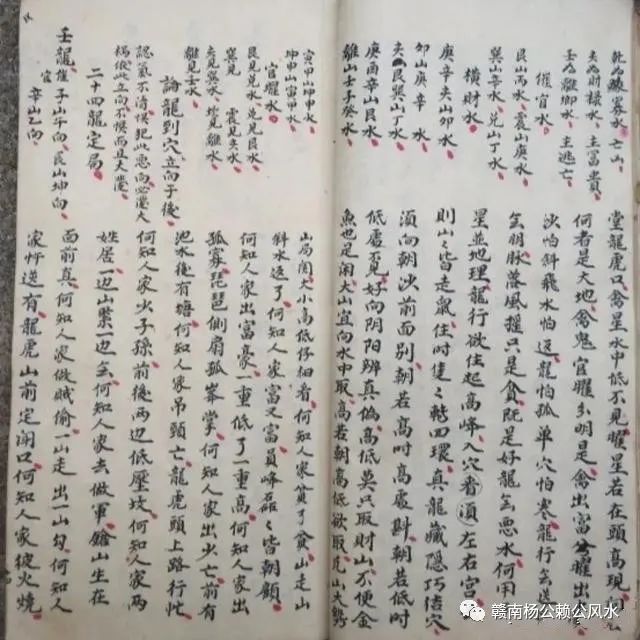 乾為殺寡水、亡山、
夬為財祿水、主富貴、
壬為離鄉水、主逃亡、
催官水、
艮山丙水、震山庚水、
巽山辛水、兌山丁水、
橫財水、
庚辛夬山卯水、
卯山庚辛水、
夬艮巽山丁水、
庚酉辛山艮水、
離山壬子癸水、
堂龍虎口禽星水中低不見耀星若在頭高現
何者是大地禽鬼官耀分明是禽出富耀出
沙怕斜飛水怕返龍怕孤單穴怕寒龍行去送
無明脉落風擺只是貧既是好龍無惡水何用
星並地理龍行欲住起高峰入穴看須左右宮
則山山皆走氣住時隻隻轉田環真龍藏隱巧怪穴
須向朝沙前面別朝若高時高處尋朝若低時
低處覓好向阴阳辨真偽高低莫只取財山不便金
魚也是闲大山宜向水中取高若朝高低欲取凡山大勢
寅甲山坤申水、
坤申山寅甲水、
官耀水、
艮見艮水、兌見艮水、
巽見 震見夬水、
夬見巽水、坎見離水、
離見
論龍到穴立向于後、
認氣不清慢犯此忌向恐憂大
禍依此立向不慢而且大發、
二十四龍定局、
壬龍、催官 子山午向、艮山坤向、
辛山乙向、
山局闊大小高低仔細看何知人家貧了貧山走山
斜水返了何知人家富又富員峰磊磊皆朝顧
何知人家出富豪一重低了一重高何知人家出
孤寡琵琶側扇孤峯掌何知人家出少亡前有
池水後有塘何知人家吊頭亡龍虎頭上路行忙
何知人家少子孫前後兩边低壓坟何知人家兩
姓居一边山紧一边無何知人家去做軍鎗山坐在
面前真何知人家做賊偷一山走出一山勾何知人
家忤逆有龍虎山前定闹口何知人家被火燒
赣南杨公赖公风水